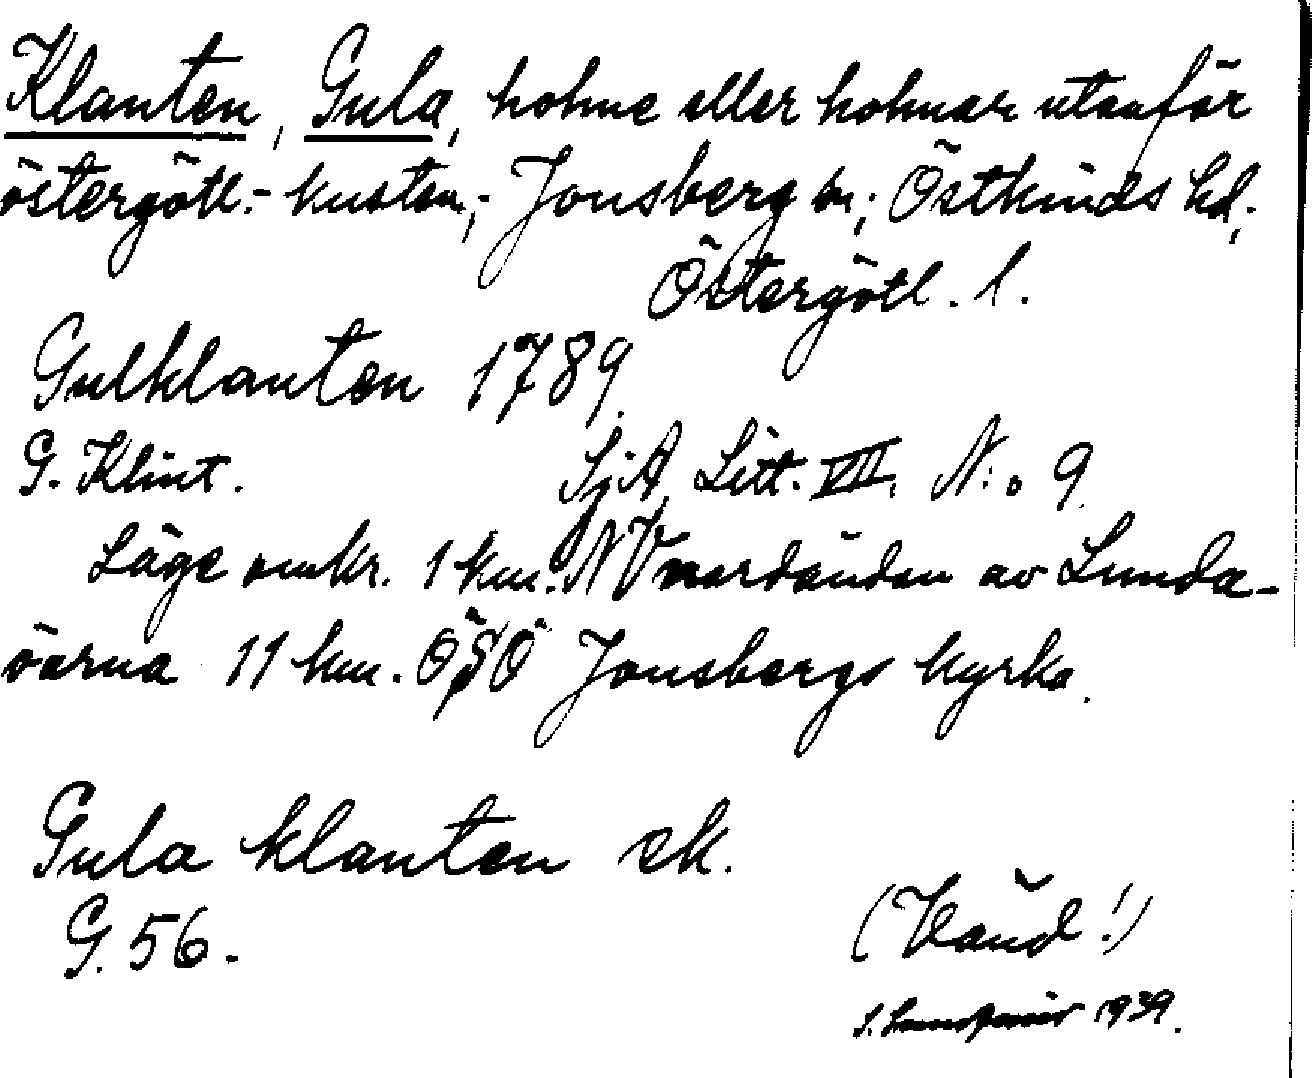 Klanten, Gula, holme eller holmar utanför
östergötl.- kusten,- Jonsberg sn; Östkinds hd,
Östergötl. l.
Gulklanten 1789.
G. Klint. SjA, Litt. VIII, N:o 9.
Läge omkr. 1 km. NV nordändan av Lunda-
öarna 11 km. ÖSÖ Jonsbergs kyrka.
Gula klanten ek.
G. 56.
(Vänd!)
1939.